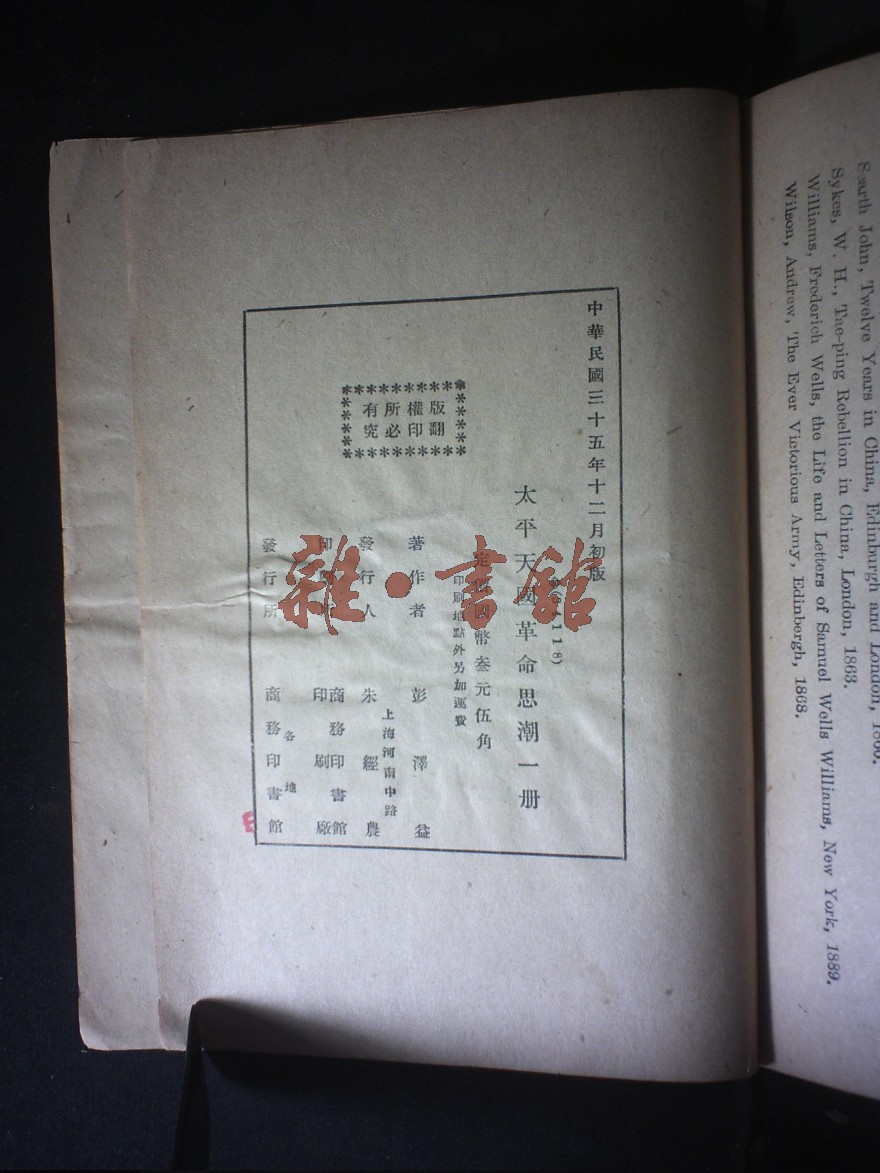 中華民國三十五年十二月初版
太平天國革命思潮一册
118)
定價國幣叁元伍角
印刷地點外另加運費
著作者 彭澤益
上海河南中路
發行人 朱經農
印刷所 商務印書館印刷廠
各地
發行所 商務印書館
版權所有
翻印必究
雜·書館
Scarth John, Twelve Years in China, Edinburgh and London, 1860.
Sykes, W. H., Tae-ping Rebellion in China, London, 1863.
Williams, Frederich Wells, the Life and Letters of Samuel Wells Williams, New York, 1889.
Wilson, Andrew, The Ever Victorious Army, Edinbergh, 1868.